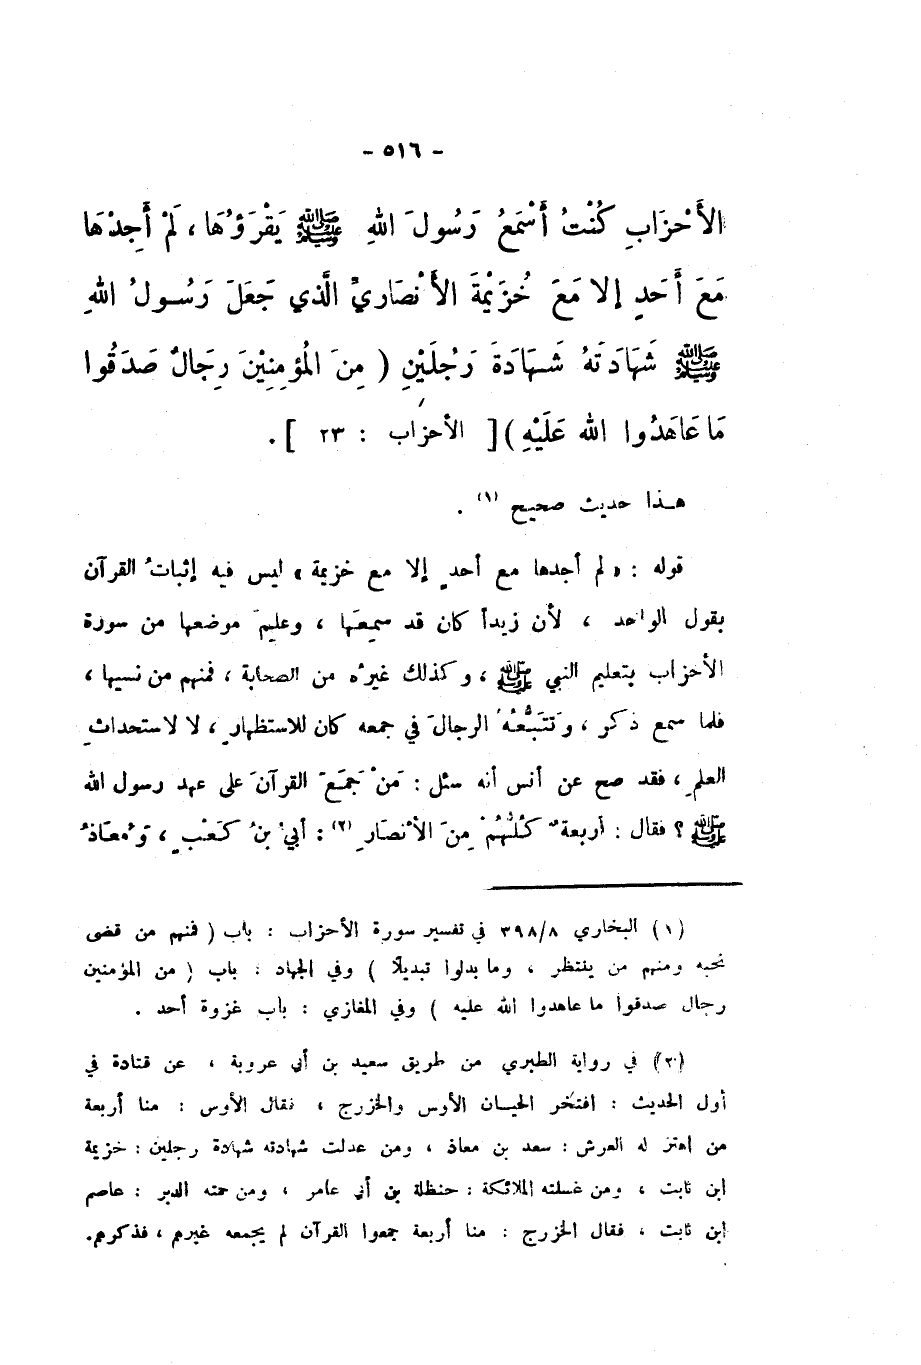 - ٥١٦ -
الأَحْزَابِ كُنْتُ أَسْمَعُ رَسُولَ اللهِ ﷺ يَقْرَؤُهَا ، لَمْ أَجِدْهَا
مَعَ أَحَدٍ إلا مَعَ خُزَيْمَةَ الأَنْصَارِيِّ الَّذي جَعَلَ رَسُولُ اللهِ
ﷺ شَهَادَتَهُ شَهَادَةَ رَجُلَيْنِ ( مِنَ الْمُؤمِنِيْنَ رِجَالٌ صَدَقُوا
مَا عَاهَدُوا اللهَ عَلَيْهِ ) [ الأحزاب : ٢٣ ] .
هذا حديث صحيح (١) .
قوله : « لم أجدها مع أحدٍ إلا مع خزيمة » ليس فيه إثباتُ القرآن
بقول الواحد ، لأن زيداً كان قد سمِعَها ، وعلِمَ موضعها من سورة
الأحزاب بتعليم النبي ﷺ ، وكذلك غيرُه من الصحابة ، فمنهم من نسيها ،
فلما سمع ذكر ، وَتَتَبُّعُهُ الرجالَ في جمعه كان للاستظهارِ ، لا لاستحداثِ
العلمِ ، فقد صح عن أنس أنه سئل : مَنْ جَمَعَ القرآنَ على عهد رسول الله
ﷺ ؟ فقال : أربعةٌ كُلُّهُمْ مِنَ الأنصَارِ (٢) : أبيُّ بنُ كَعْبٍ ، وَمُعَاذُ
(١) البخاري ٣٩٨/٨ في تفسير سورة الأحزاب : باب ( فمنهم من قضى
نحبه ومنهم من ينتظر ، وما بدلوا تبديلًا ) وفي الجهاد : باب ( من المؤمنين
رجال صدقوا ما عاهدوا الله عليه ) وفي المغازي : باب غزوة أحد .
(٢) في رواية الطبري من طريق سعيد بن أبي عروبة ، عن قتادة في
أول الحديث : افتخر الحيان الأوس والخزرج ، فقال الأوس : منا أربعة
من اهتز له العرش : سعد بن معاذ ، ومن عدلت شهادته شهادة رجلين : خزيمة
ابن ثابت ، ومن غسلته الملائكة : حنظلة بن أبي عامر ، ومن حمته الدبر : عاصم
ابن ثابت ، فقال الخزرج : منا أربعة جمعوا القرآن لم يجمعه غيرهم ، فذكرهم.